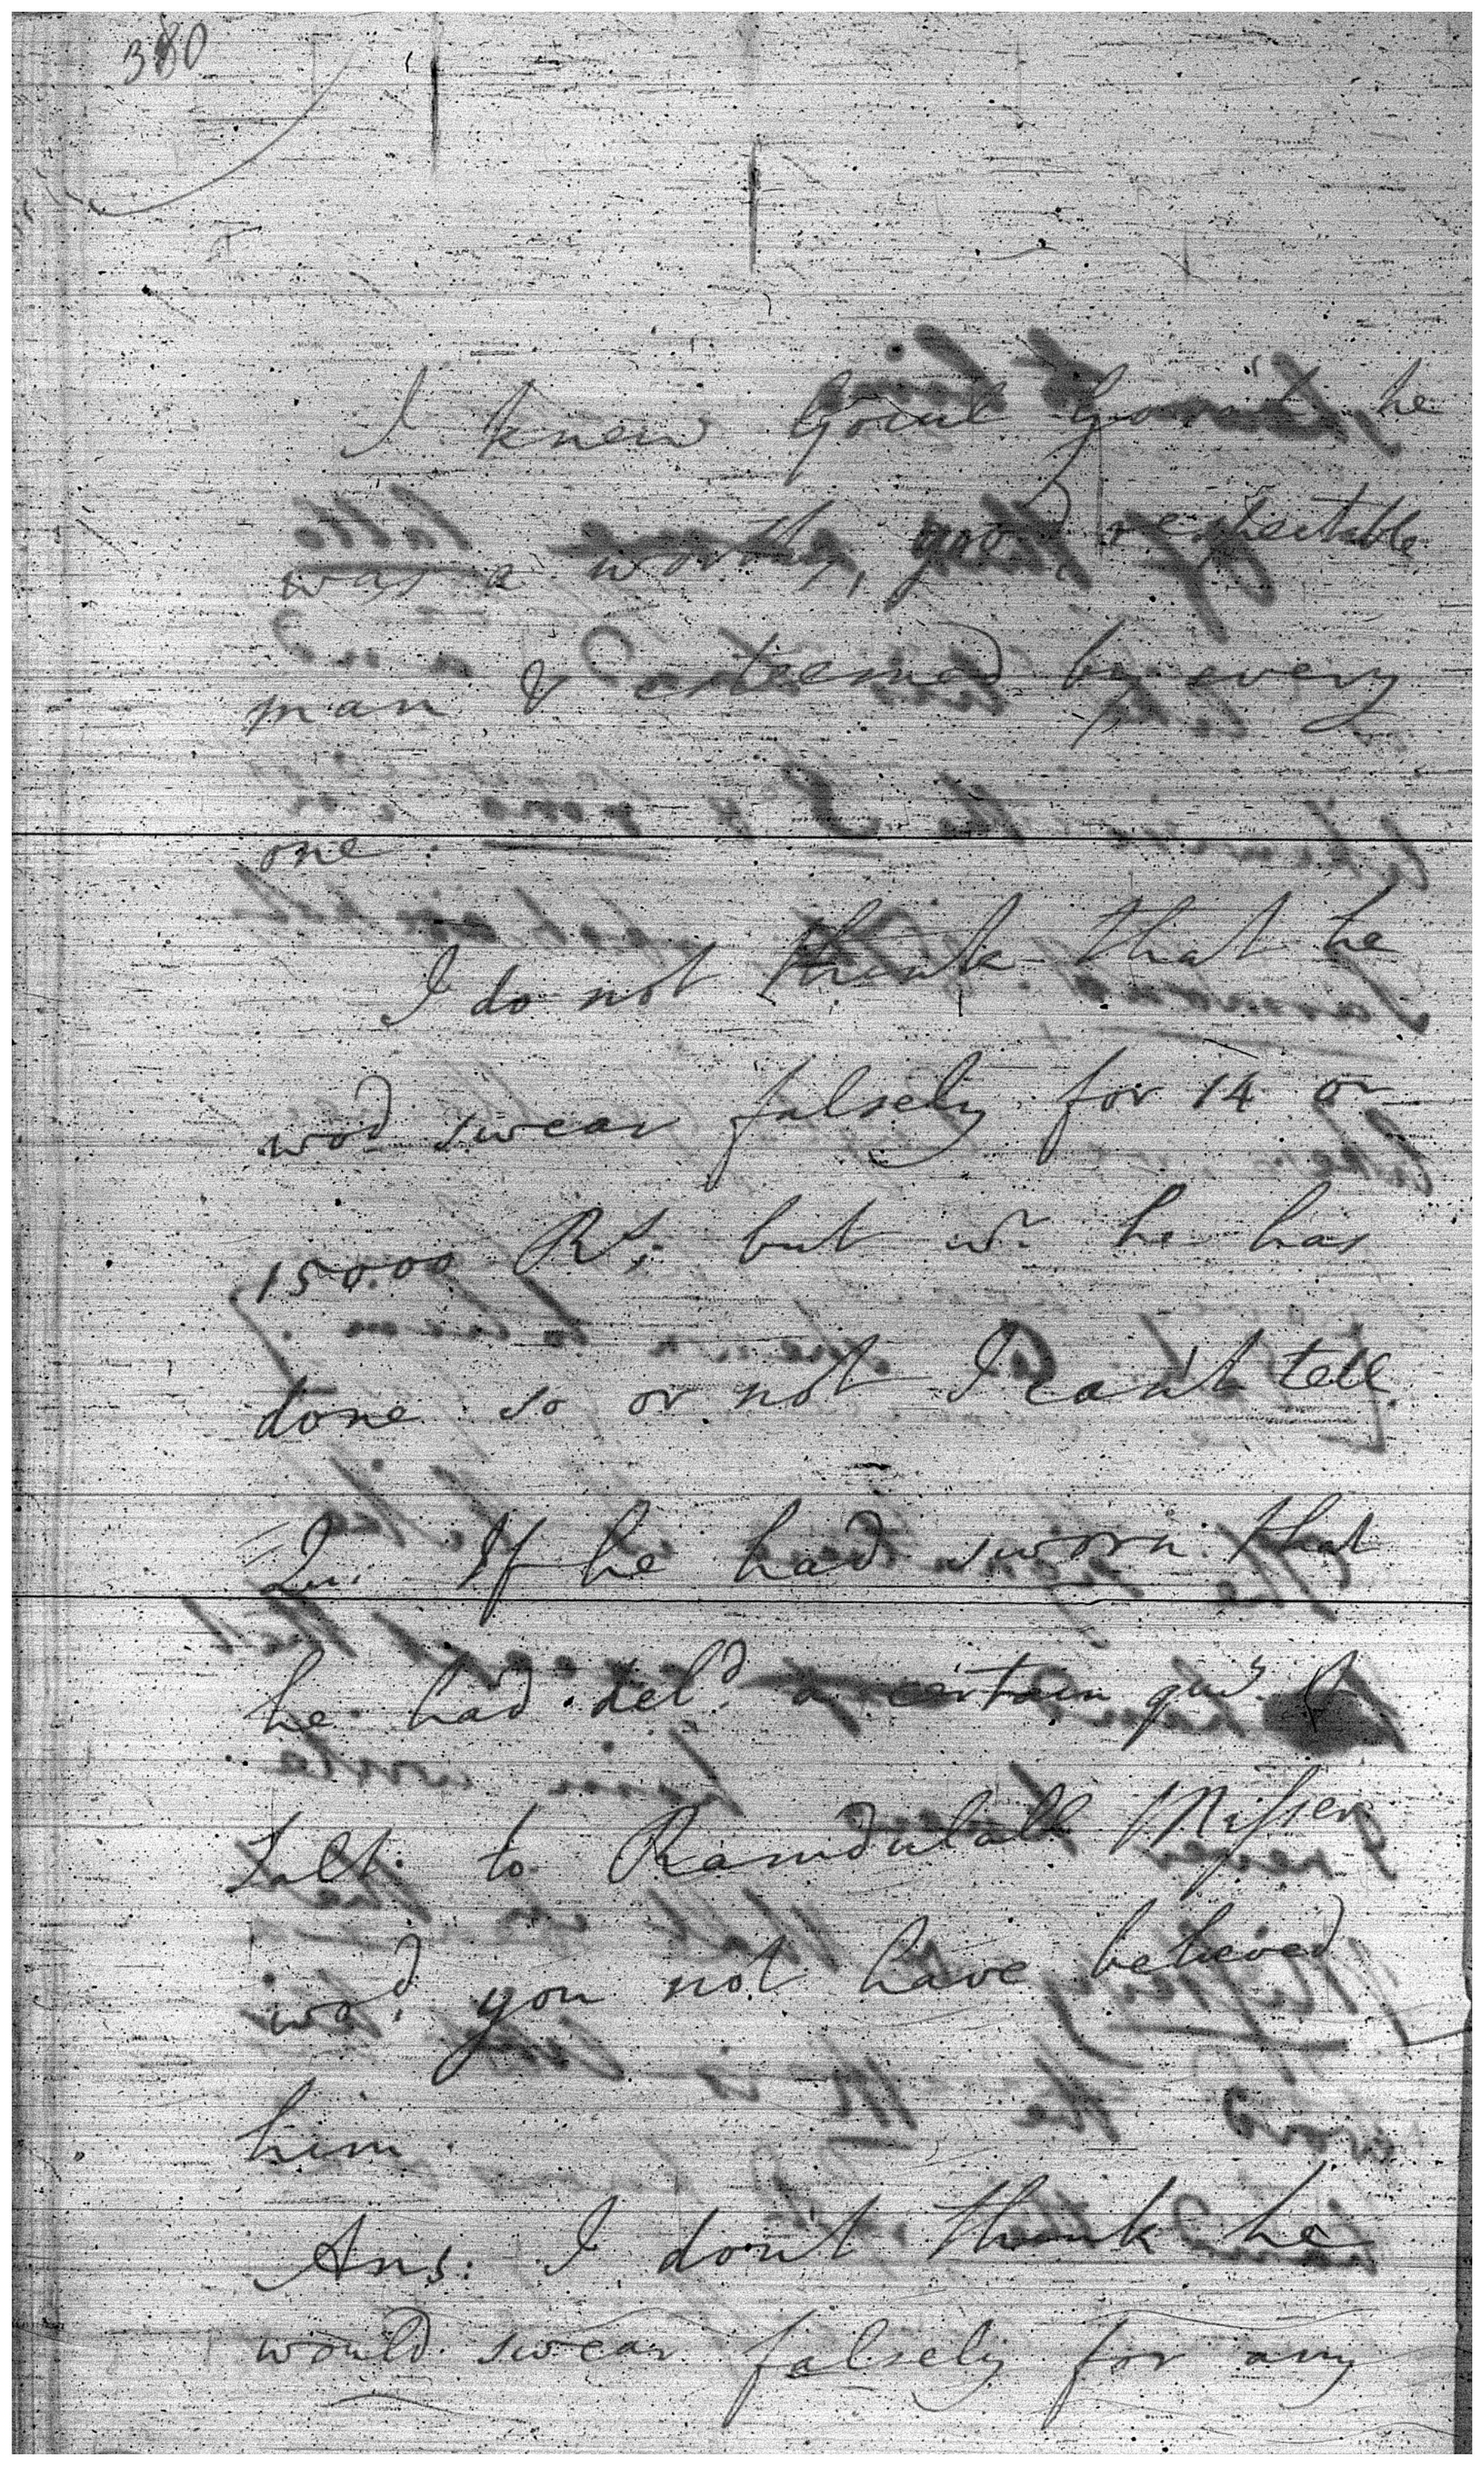 380
I knew Gocul he
was a worthy, good respectable
man & esteemed by every
one.
I do not think that he
wod swear falsely for 14 or
15000 Rs; but wr. he has
done so or not I can't tell.
Qu. If he had sworn that
he had deld. a certain qus. of
Salt to Ramdulall Misser
wod. you not have believed
him.
Ans: I don't think he
would swear falsely for any